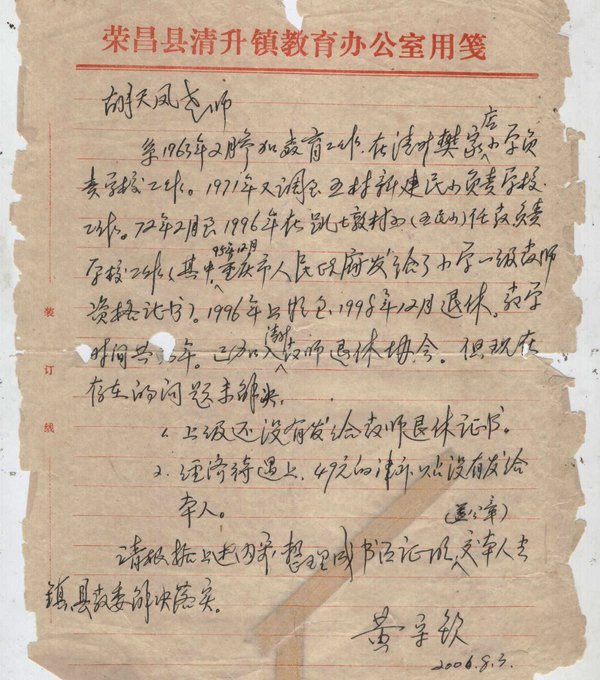 荣昌县清升镇教育办公室用笺
胡天凤老师
至1963年2月参加教育工作,在清升樊家店小学负
责学校工作。1971年又调 五村新建民小负责学校
工作。72年2月 1996年在 七敦村小(五民小)任教负责
学校工作(其中95年12月重庆市人民政府发给了小学一级教师
资格证书)。1996年上 1998年12月退休,教学
时间共 年。已加入清升教师退休协会。但现在
存在的问题未解决。
1.上级还没有发给教师退休证书。
2.经济待遇上,49元的津 没有发给
本人。
(盖公章)
请根据上述内容,整理成书面证明,交本人去
镇、县教委解决落实。
黄 钦
2006.8.3.
装
订
线